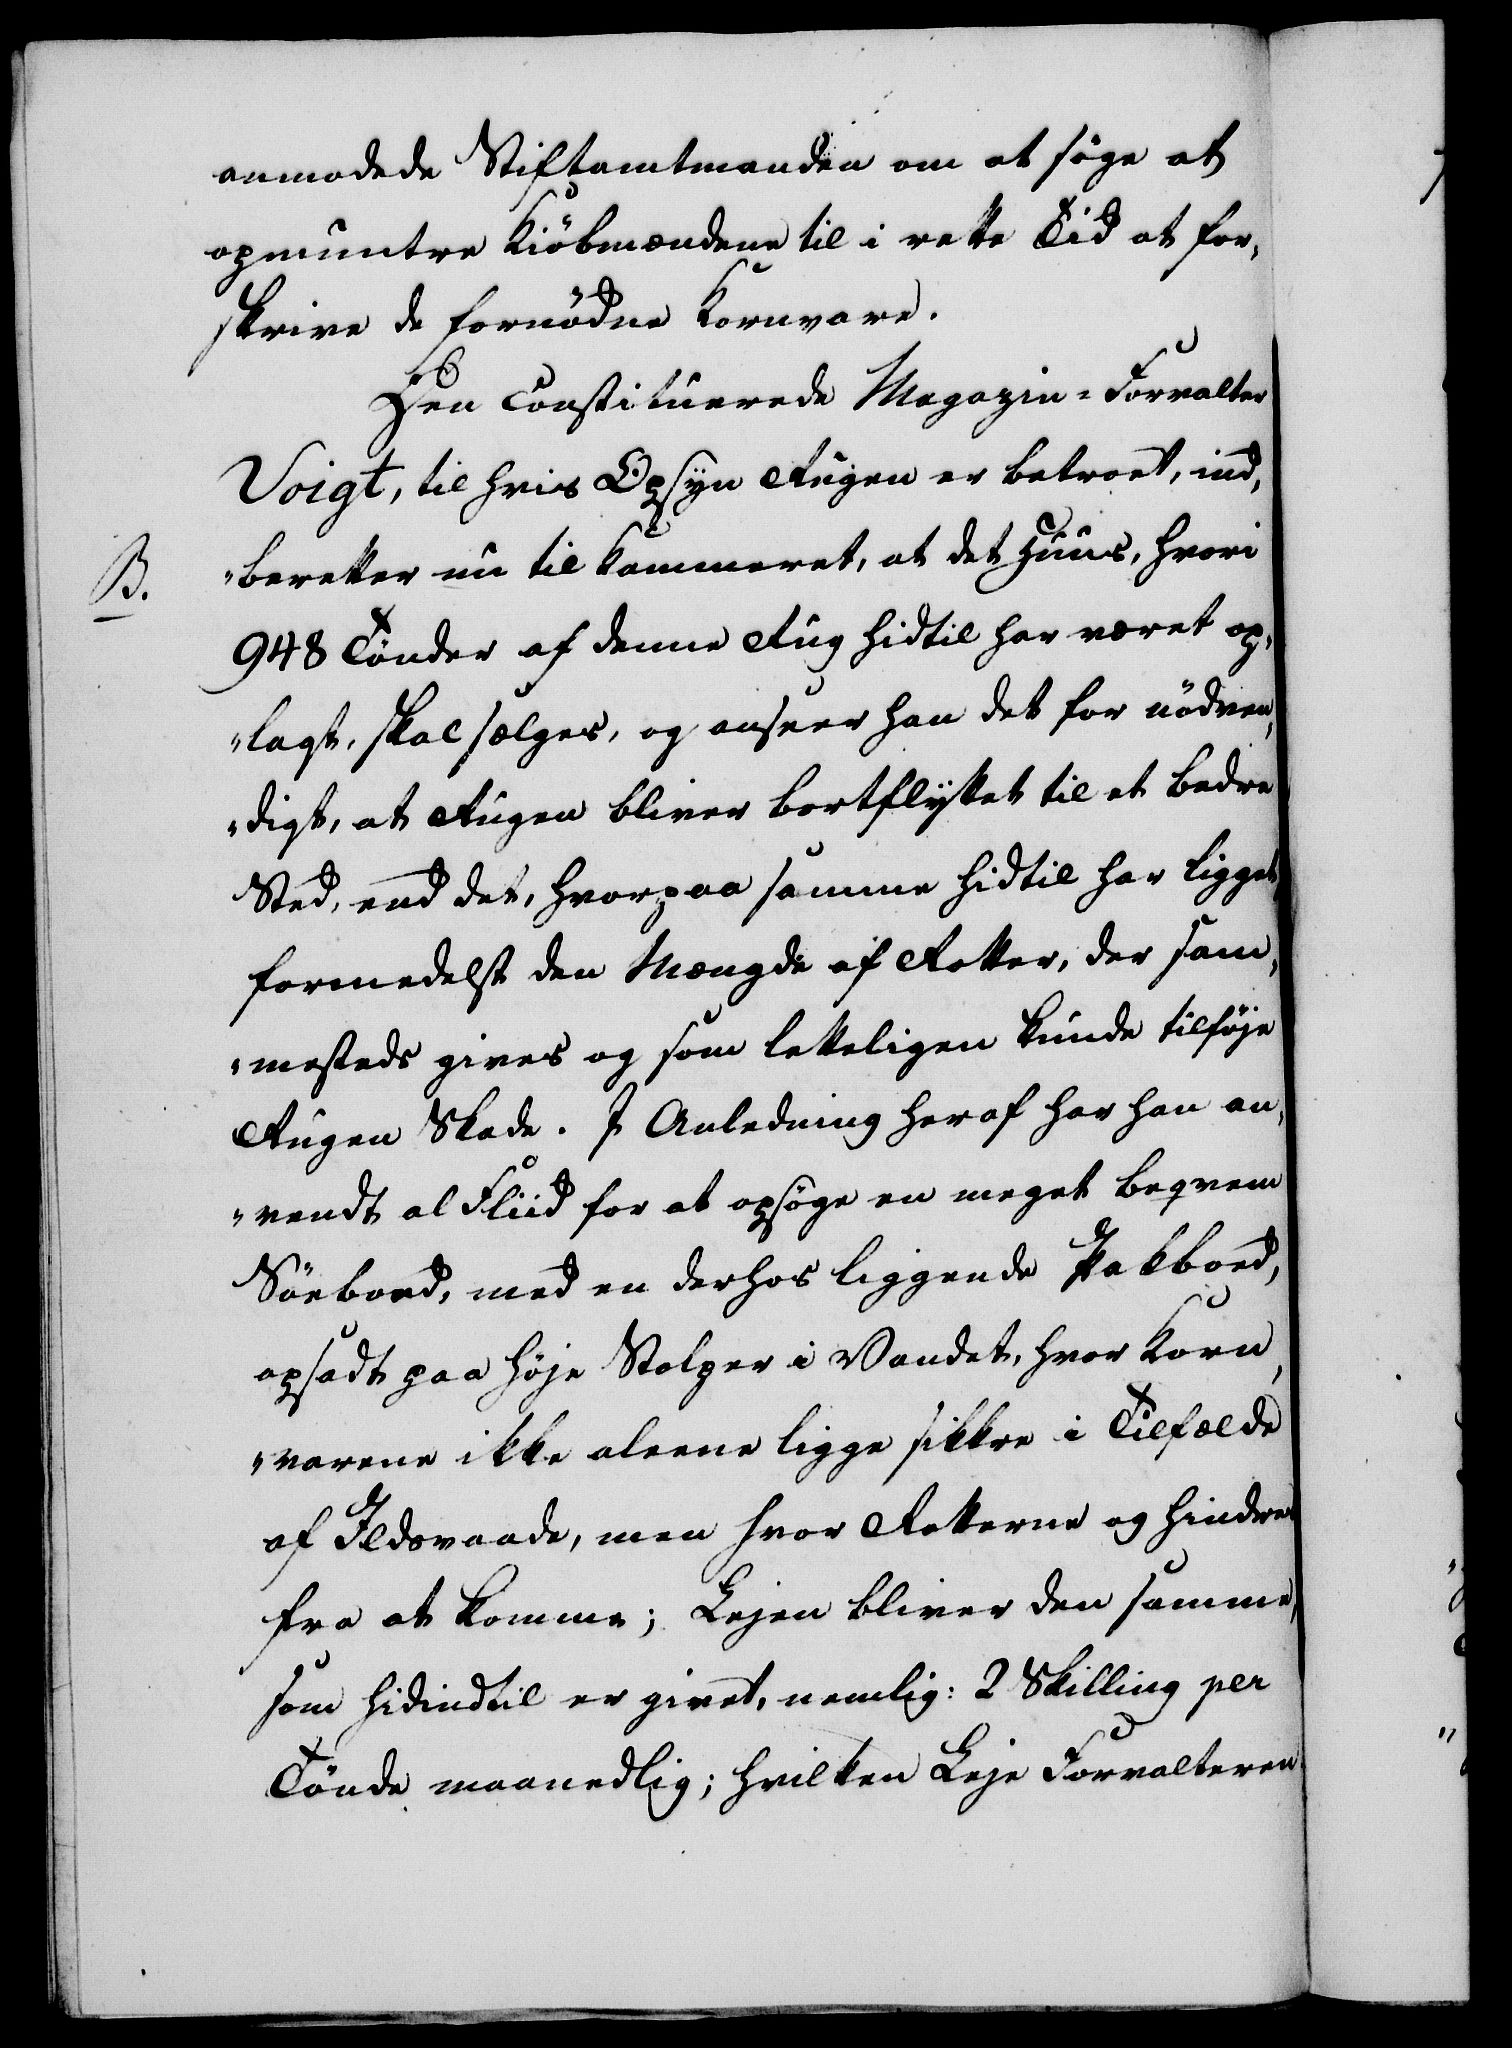 anmodede Stiftamtmanden om at søge at
opmuntre Kiöbmændene til i rette Tid at for„
skrive de fornødne Kornvare.
Den constituerede Magazin-Forvalter
Voigt, til hvis Opsyn Rugen er betroet, ind„
B.
„beretter nu til Kammeret, at det Huus, hvori
948 Tönder af denne Rug hidtil har været op„
„lagt, skal sælges, og anseer han det for nödven„
„digt, at Rugen bliver bortflyttet til et bedre
Sted, end det, hvorpaa samme hidtil har ligget
formedelst den Mængde af Rotter, der sam„
„mesteds gives og som letteligen kunde tilføje
Rugen Skade. I Anledning heraf har han an„
„vendt al Fliid for at opsøge en meget beqvem
Söeboed, med en derhos liggende Pakboed,
opsadt paa høje Stolper i Vandet, hvor Korn„
„varene ikke aleene ligge sikkre i Tilfælde
af Ildsvaade, men hvor Rotterne og hindres
fra at komme; Lejen bliver den samme,
som hidindtil er givet, nemlig: 2 Skilling per
Tönde maanedlig; hvilken Leje Forvalteren